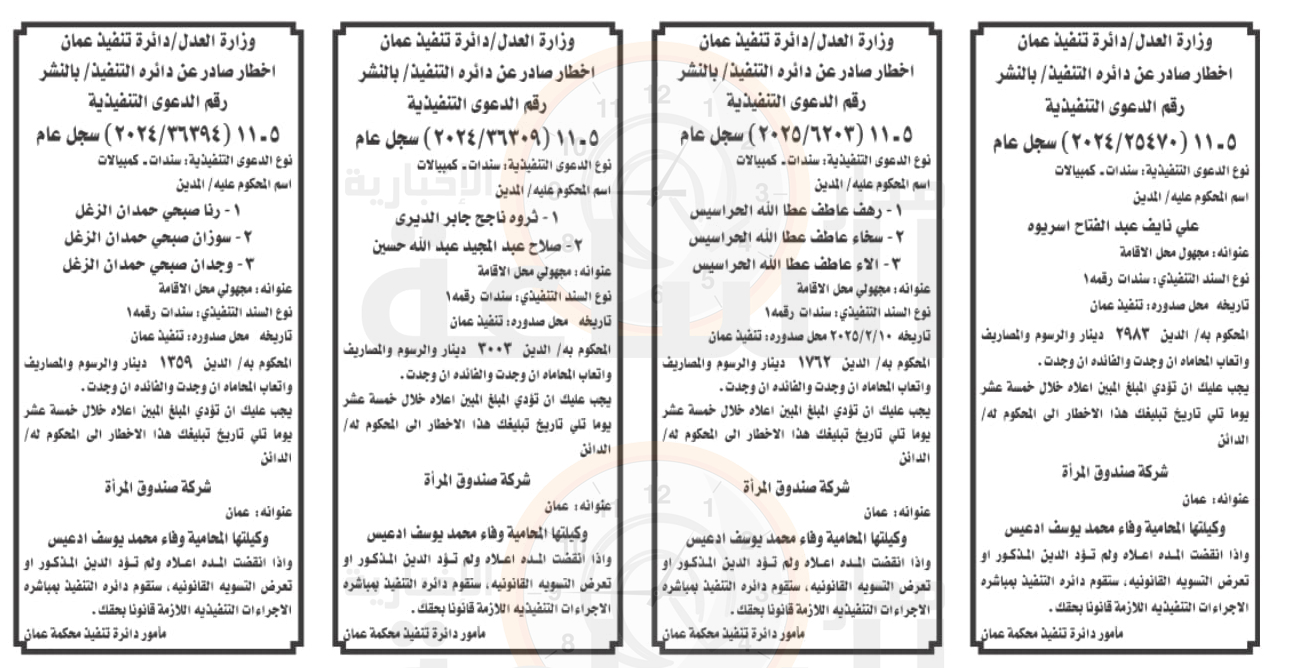 وزارة العدل/دائرة تنفيذ عمان
اخطار صادر عن دائره التنفيذ/ بالنشر
رقم الدعوى التنفيذية
٥ـ١١ (٢٠٢٤/٢٥٤٧٠) سجل عام
نوع الدعوى التنفيذية: سندات ـ كمبيالات
اسم المحكوم عليه/ المدين
علي نايف عبد الفتاح اسريوه
عنوانه: مجهول محل الاقامة
نوع السند التنفيذي: سندات رقمه١
تاريخه محل صدوره: تنفيذ عمان
المحكوم به/ الدين ٢٩٨٣ دينار والرسوم والمصاريف
واتعاب المحاماه ان وجدت والفائده ان وجدت.
يجب عليك ان تؤدي المبلغ المبين اعلاه خلال خمسة عشر
يوما تلي تاريخ تبليغك هذا الاخطار الى المحكوم له/
الدائن
شركة صندوق المرأة
عنوانه: عمان
وكيلتها المحامية وفاء محمد يوسف ادعيس
واذا انقضت المده اعلاه ولم تؤد الدين المذكور او
تعرض التسويه القانونيه، ستقوم دائره التنفيذ بمباشره
الاجراءات التنفيذيه اللازمة قانونا بحقك.
مأمور دائرة تنفيذ محكمة عمان
وزارة العدل/دائرة تنفيذ عمان
اخطار صادر عن دائره التنفيذ/ بالنشر
رقم الدعوى التنفيذية
٥ـ١١ (٢٠٢٥/٦٢٠٣) سجل عام
نوع الدعوى التنفيذية: سندات ـ كمبيالات
اسم المحكوم عليه/ المدين
١- رهف عاطف عطا الله الحراسيس
٢- سخاء عاطف عطا الله الحراسيس
٣- الاء عاطف عطا الله الحراسيس
عنوانه: مجهولي محل الاقامة
نوع السند التنفيذي: سندات رقمه١
تاريخه ٢٠٢٥/٢/١٠ محل صدوره: تنفيذ عمان
المحكوم به/ الدين ١٧٦٢ دينار والرسوم والمصاريف
واتعاب المحاماه ان وجدت والفائده ان وجدت.
يجب عليك ان تؤدي المبلغ المبين اعلاه خلال خمسة عشر
يوما تلي تاريخ تبليغك هذا الاخطار الى المحكوم له/
الدائن
شركة صندوق المرأة
عنوانه: عمان
وكيلتها المحامية وفاء محمد يوسف ادعيس
واذا انقضت المده اعلاه ولم تؤد الدين المذكور او
تعرض التسويه القانونيه، ستقوم دائره التنفيذ بمباشره
الاجراءات التنفيذيه اللازمة قانونا بحقك.
مأمور دائرة تنفيذ محكمة عمان
وزارة العدل/دائرة تنفيذ عمان
اخطار صادر عن دائره التنفيذ/ بالنشر
رقم الدعوى التنفيذية
٥ـ١١ (٢٠٢٤/٣٦٣٠٩) سجل عام
نوع الدعوى التنفيذية: سندات ـ كمبيالات
اسم المحكوم عليه/ المدين
١- ثروه ناجح جابر الديرى
٢- صلاح عبد المجيد عبد الله حسين
عنوانه: مجهولي محل الاقامة
نوع السند التنفيذي: سندات رقمه١
تاريخه محل صدوره: تنفيذ عمان
المحكوم به/ الدين ٣٠٠٣ دينار والرسوم والمصاريف
واتعاب المحاماه ان وجدت والفائده ان وجدت.
يجب عليك ان تؤدي المبلغ المبين اعلاه خلال خمسة عشر
يوما تلي تاريخ تبليغك هذا الاخطار الى المحكوم له/
الدائن
شركة صندوق المرأة
عنوانه: عمان
وكيلتها المحامية وفاء محمد يوسف ادعيس
واذا انقضت المده اعلاه ولم تؤد الدين المذكور او
تعرض التسويه القانونيه، ستقوم دائره التنفيذ بمباشره
الاجراءات التنفيذيه اللازمة قانونا بحقك.
مأمور دائرة تنفيذ محكمة عمان
وزارة العدل/دائرة تنفيذ عمان
اخطار صادر عن دائره التنفيذ/ بالنشر
رقم الدعوى التنفيذية
٥ـ١١ (٢٠٢٤/٣٦٣٩٤) سجل عام
نوع الدعوى التنفيذية: سندات ـ كمبيالات
اسم المحكوم عليه/ المدين
١- رنا صبحي حمدان الزغل
٢- سوزان صبحي حمدان الزغل
٣- وجدان صبحي حمدان الزغل
عنوانه: مجهولي محل الاقامة
نوع السند التنفيذي: سندات رقمه١
تاريخه محل صدوره: تنفيذ عمان
المحكوم به/ الدين ١٣٥٩ دينار والرسوم والمصاريف
واتعاب المحاماه ان وجدت والفائده ان وجدت.
يجب عليك ان تؤدي المبلغ المبين اعلاه خلال خمسة عشر
يوما تلي تاريخ تبليغك هذا الاخطار الى المحكوم له/
الدائن
شركة صندوق المرأة
عنوانه: عمان
وكيلتها المحامية وفاء محمد يوسف ادعيس
واذا انقضت المده اعلاه ولم تؤد الدين المذكور او
تعرض التسويه القانونيه، ستقوم دائره التنفيذ بمباشره
الاجراءات التنفيذيه اللازمة قانونا بحقك.
مأمور دائرة تنفيذ محكمة عمان